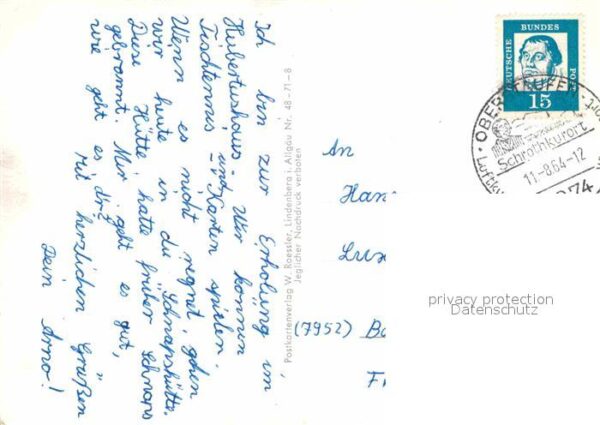 Ich bin zur Erholung im
Hubertushaus - Wir können
Tischtennis und Karten spielen.
Wenn es nicht regnet, gehen
wir heute in die Schnapshütte.
Diese Hütte hatte früher Schnaps
gebrannt. Mir geht es gut,
wie geht es dir?
Mit herzlichen Grüßen
Dein Arno!
Postkartenverlag W. Roessler, Lindenberg i. Allgäu Nr. 48-71-8
Jeglicher Nachdruck verboten
An
Han
Lux
(7952) Ba
F
DEUTSCHE BUNDES POST
15
OBER
Schrothkurort
Luftku
11-8.64-12
privacy protection
Datenschutz